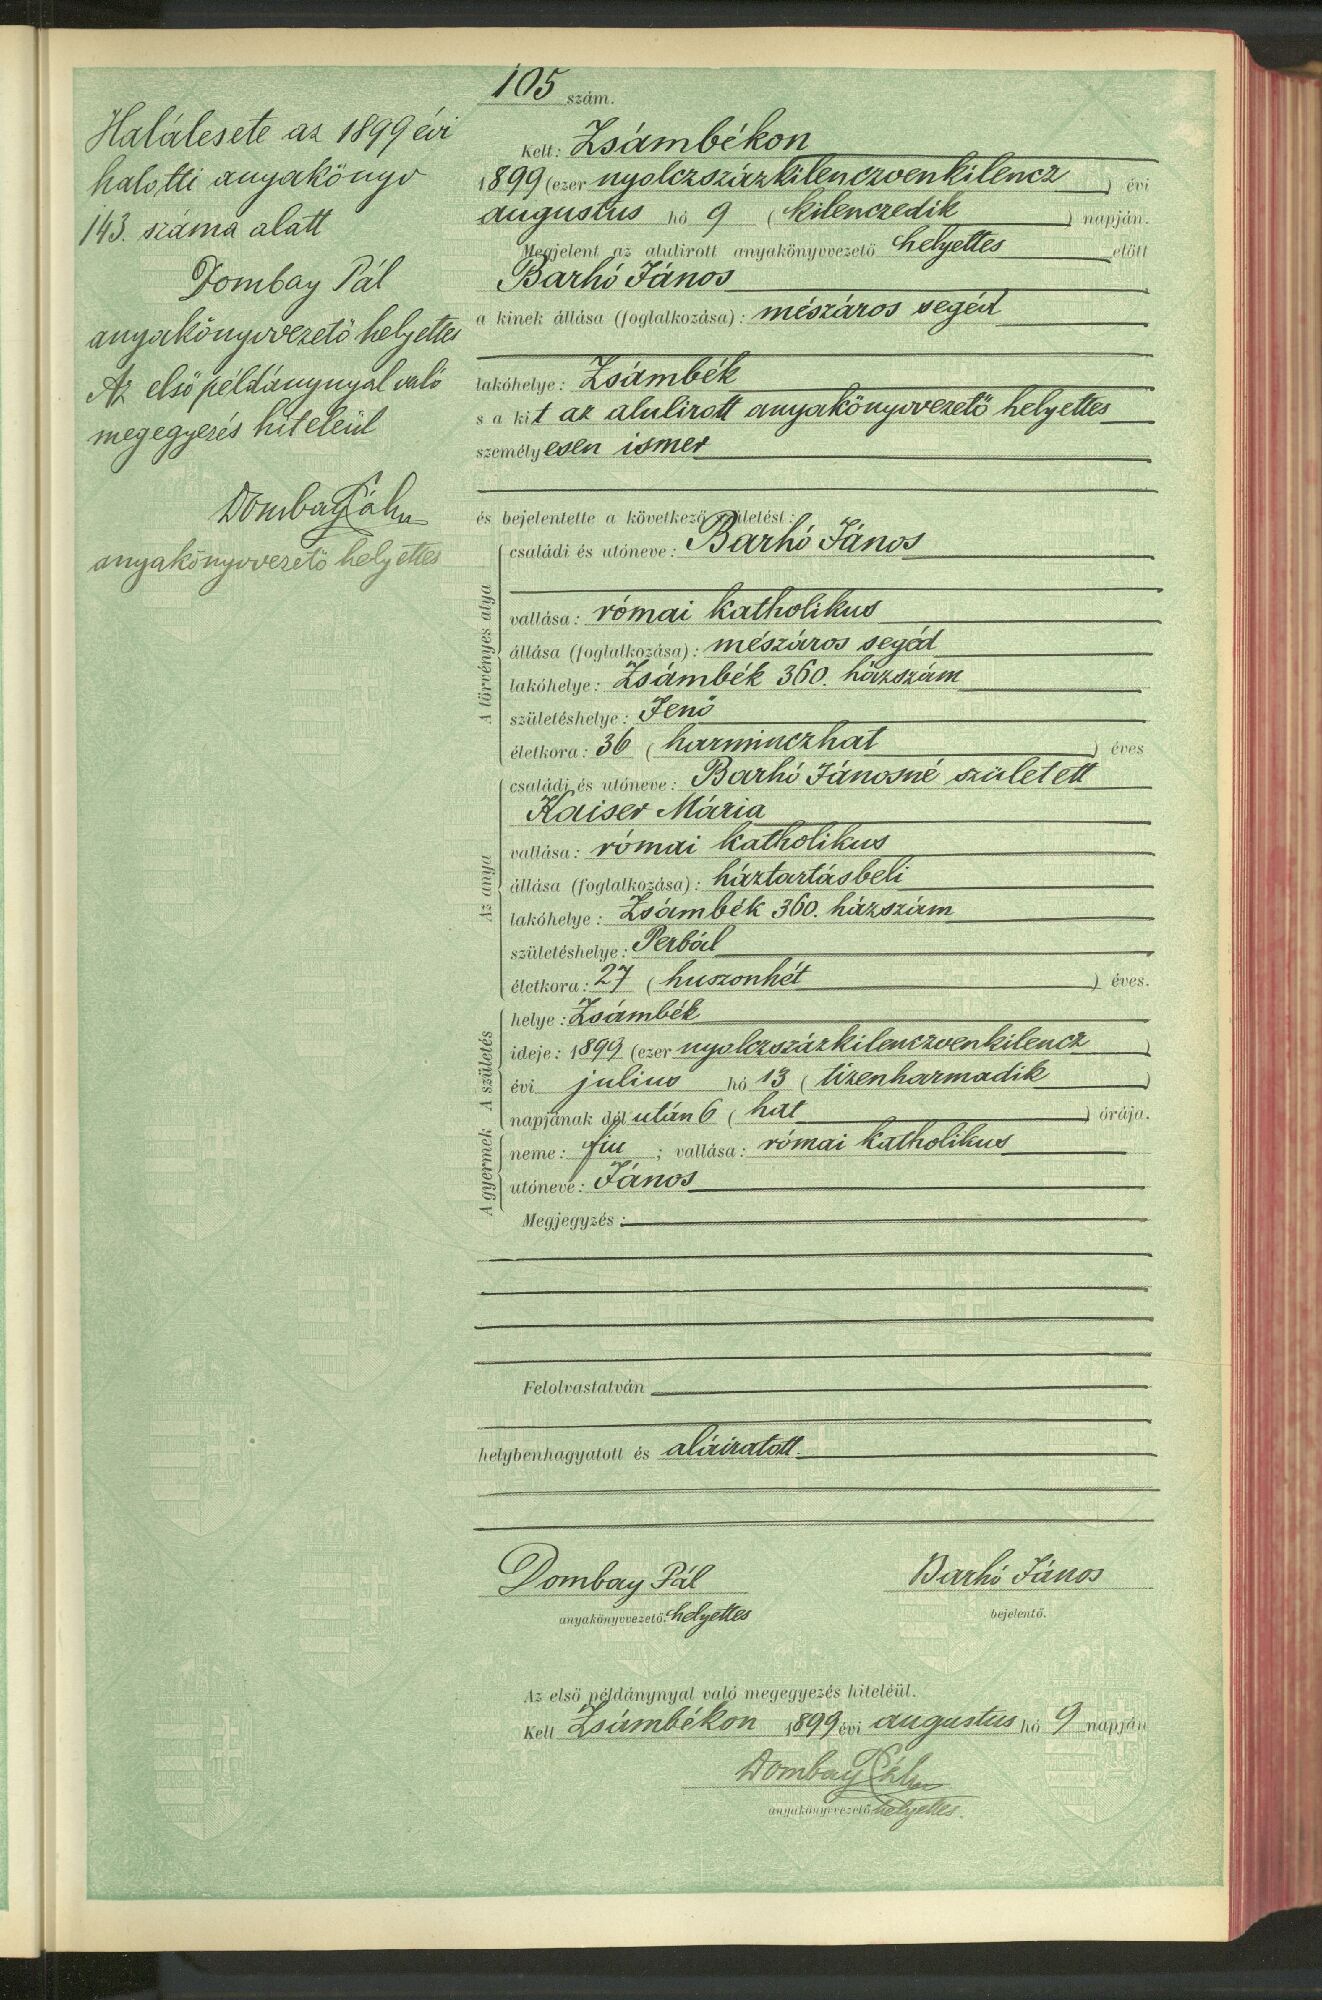 Halálesete az 1899 évi
halotti anyakönyv
143. száma alatt
Dombay Pál
anyakönyvvezető helyettes
Az első példánynyal való
megegyezés hiteléül
Dombay Pál
anyakönyvvezető helyettes
105 szám.
Kelt: Zsámbékon
1899 (ezer nyolczszázkilenczvenkilencz) évi
augustus hó 9 (kilenczedik) napján.
Megjelent az alulirott anyakönyvvezető helyettes előtt
Barhó János
a kinek állása (foglalkozása): mészáros segéd
lakóhelye: Zsámbék
s a kit az alulirott anyakönyvvezető helyettes
személyesen ismer
és bejelentette a következő születést:
A törvényes atya
családi és utóneve: Barhó János
vallása: római katholikus
állása (foglalkozása): mészáros segéd
lakóhelye: Zsámbék 360. házszám
születéshelye: Jenő
életkora: 36 (harminczhat) éves
Az anya
családi és utóneve: Barhó Jánosné született
Kaiser Mária
vallása: római katholikus
állása (foglalkozása): háztartásbeli
lakóhelye: Zsámbék 360. házszám
születéshelye: Perbál
életkora: 27 (huszonhét) éves.
A születés
helye: Zsámbék
ideje: 1899 (ezer nyolczszázkilenczvenkilencz)
évi julius hó 13 (tizenharmadik)
napjának dél után 6 (hat) órája.
A gyermek
neme: fiu; vallása: római katholikus
utóneve: János
Megjegyzés:
Felolvastatván
helybenhagyatott és aláiratott.
Dombay Pál
anyakönyvvezető. helyettes
Barhó János
bejelentő.
Az első példánynyal való megegyezés hiteléül.
Kelt Zsámbékon 1899 évi augustus hó 9 napján
Dombay Pál
anyakönyvvezető helyettes.